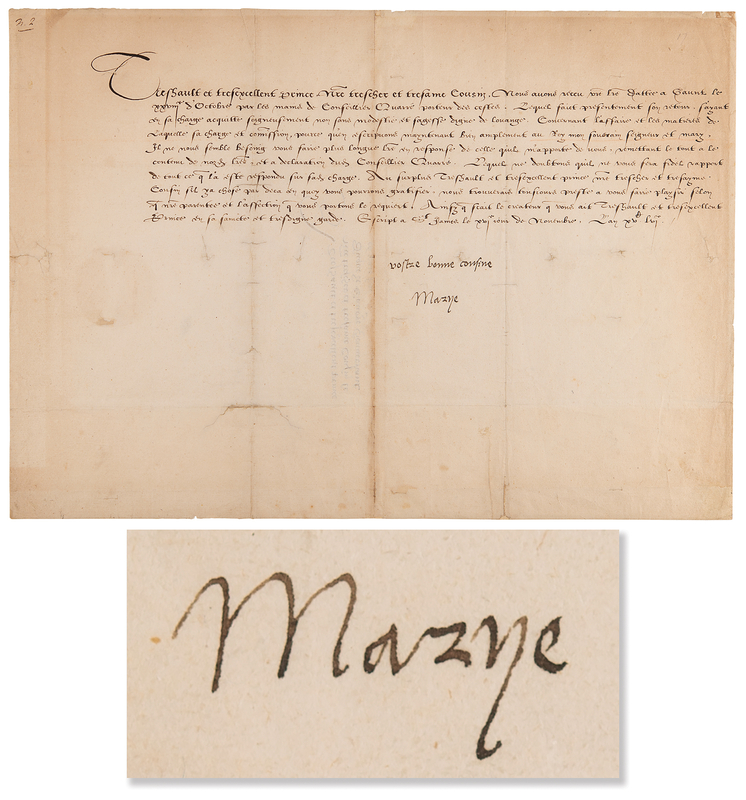 Treshault et tresexcellent prince Nre trescher et tresame Cousin. Nous avons receu vre lre dattee a Gaunt le
xxviii d'Octobre par les mains de Conseillier Quarre porteur des cestes. Lequel faut presentement son retour, s'ayant
en sa charge acquitte soigneusement non sans modestie et sagesse digne de louange. Concernant l'affaire et les matieres de
laquelle sa charge et comission, pource qu'en escripvons maintenant bien amplement au Roy mon souverain seigneur et mary.
Il ne nous semble besoing vous faire plus longue lre en response de celle qu'il m'apporte de vous, remettant le tout a le
contenu de nosd lres, et a declaration dud Conseillier Quarre. Lequel ne doubtons qu'il ne vous fera fidel rapport
de tout ce q la este respondu sur sad charge. Au surplus Treshault et tresexcellent prince nre trescher et tresayme
Cousin s'il ya chose par deca en quoy vous pourrons gratifier, nous trouverais tousiours preste a vous faire plaisir selon
q nre parentee et l'affection q vous portons le requiert. Ainsy q scait le createur q vous ait Treshault et tresexcellent
Prince en sa saincte et tresdigne garde. Escript a St James le xvi iour de Novembre. L'an xvc lvii.
vostre bonne cousine
Marye
Marye